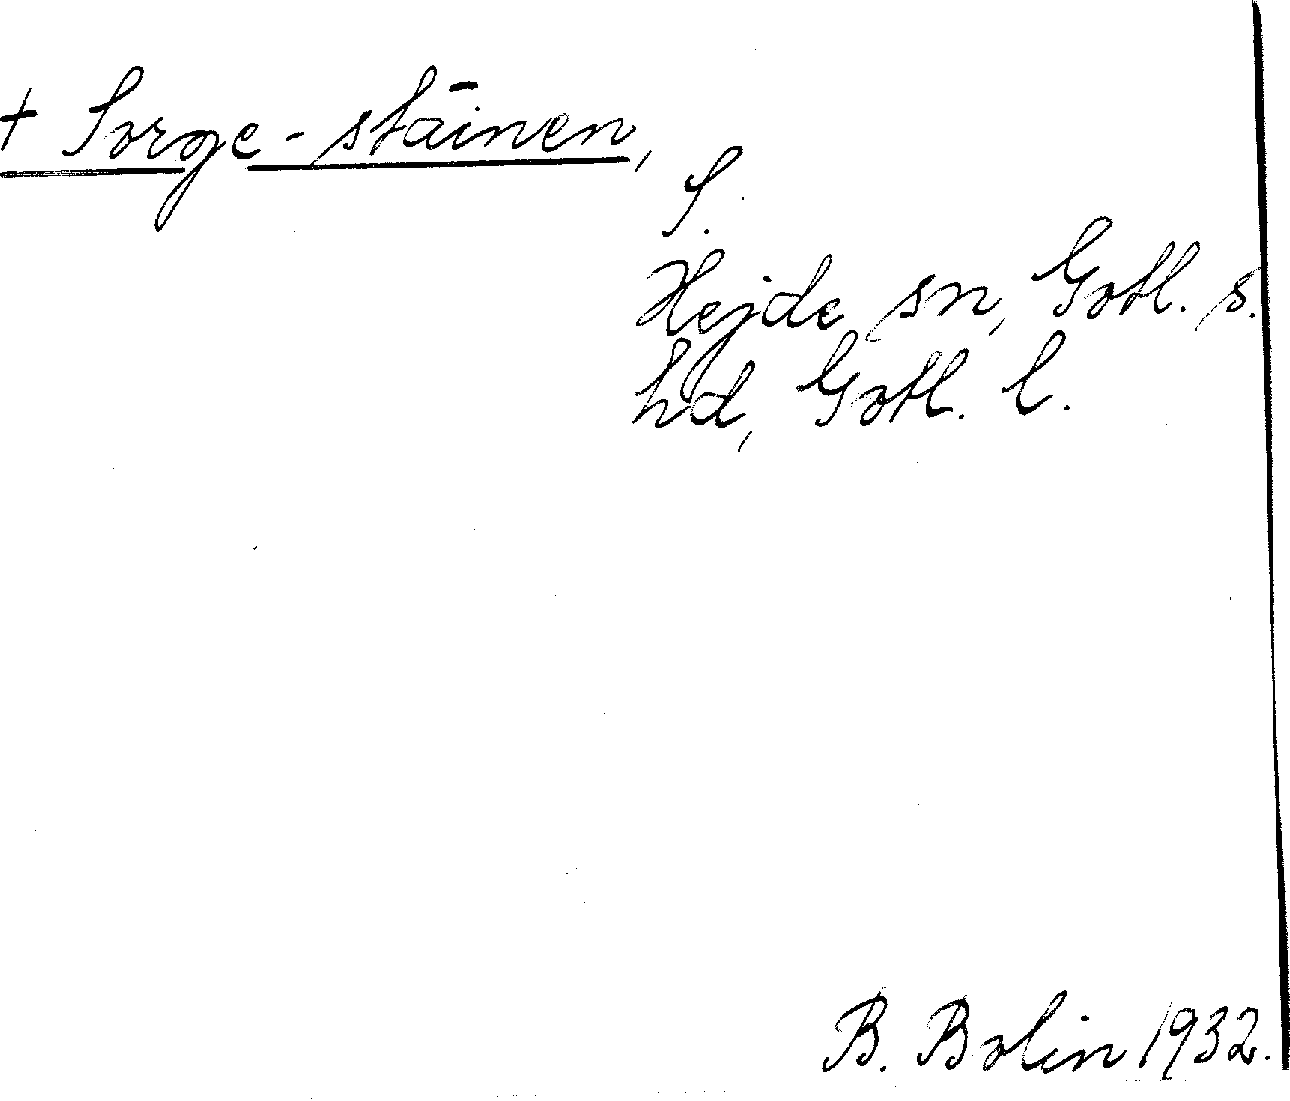 + Sorge-stāinen,
S.
Hejde sn, Gotl. s.
hd, Gotl. l.
B. Bolin 1932.